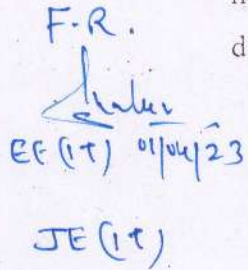 F.R.
EE (IT) 01/04/23
JE (IT)